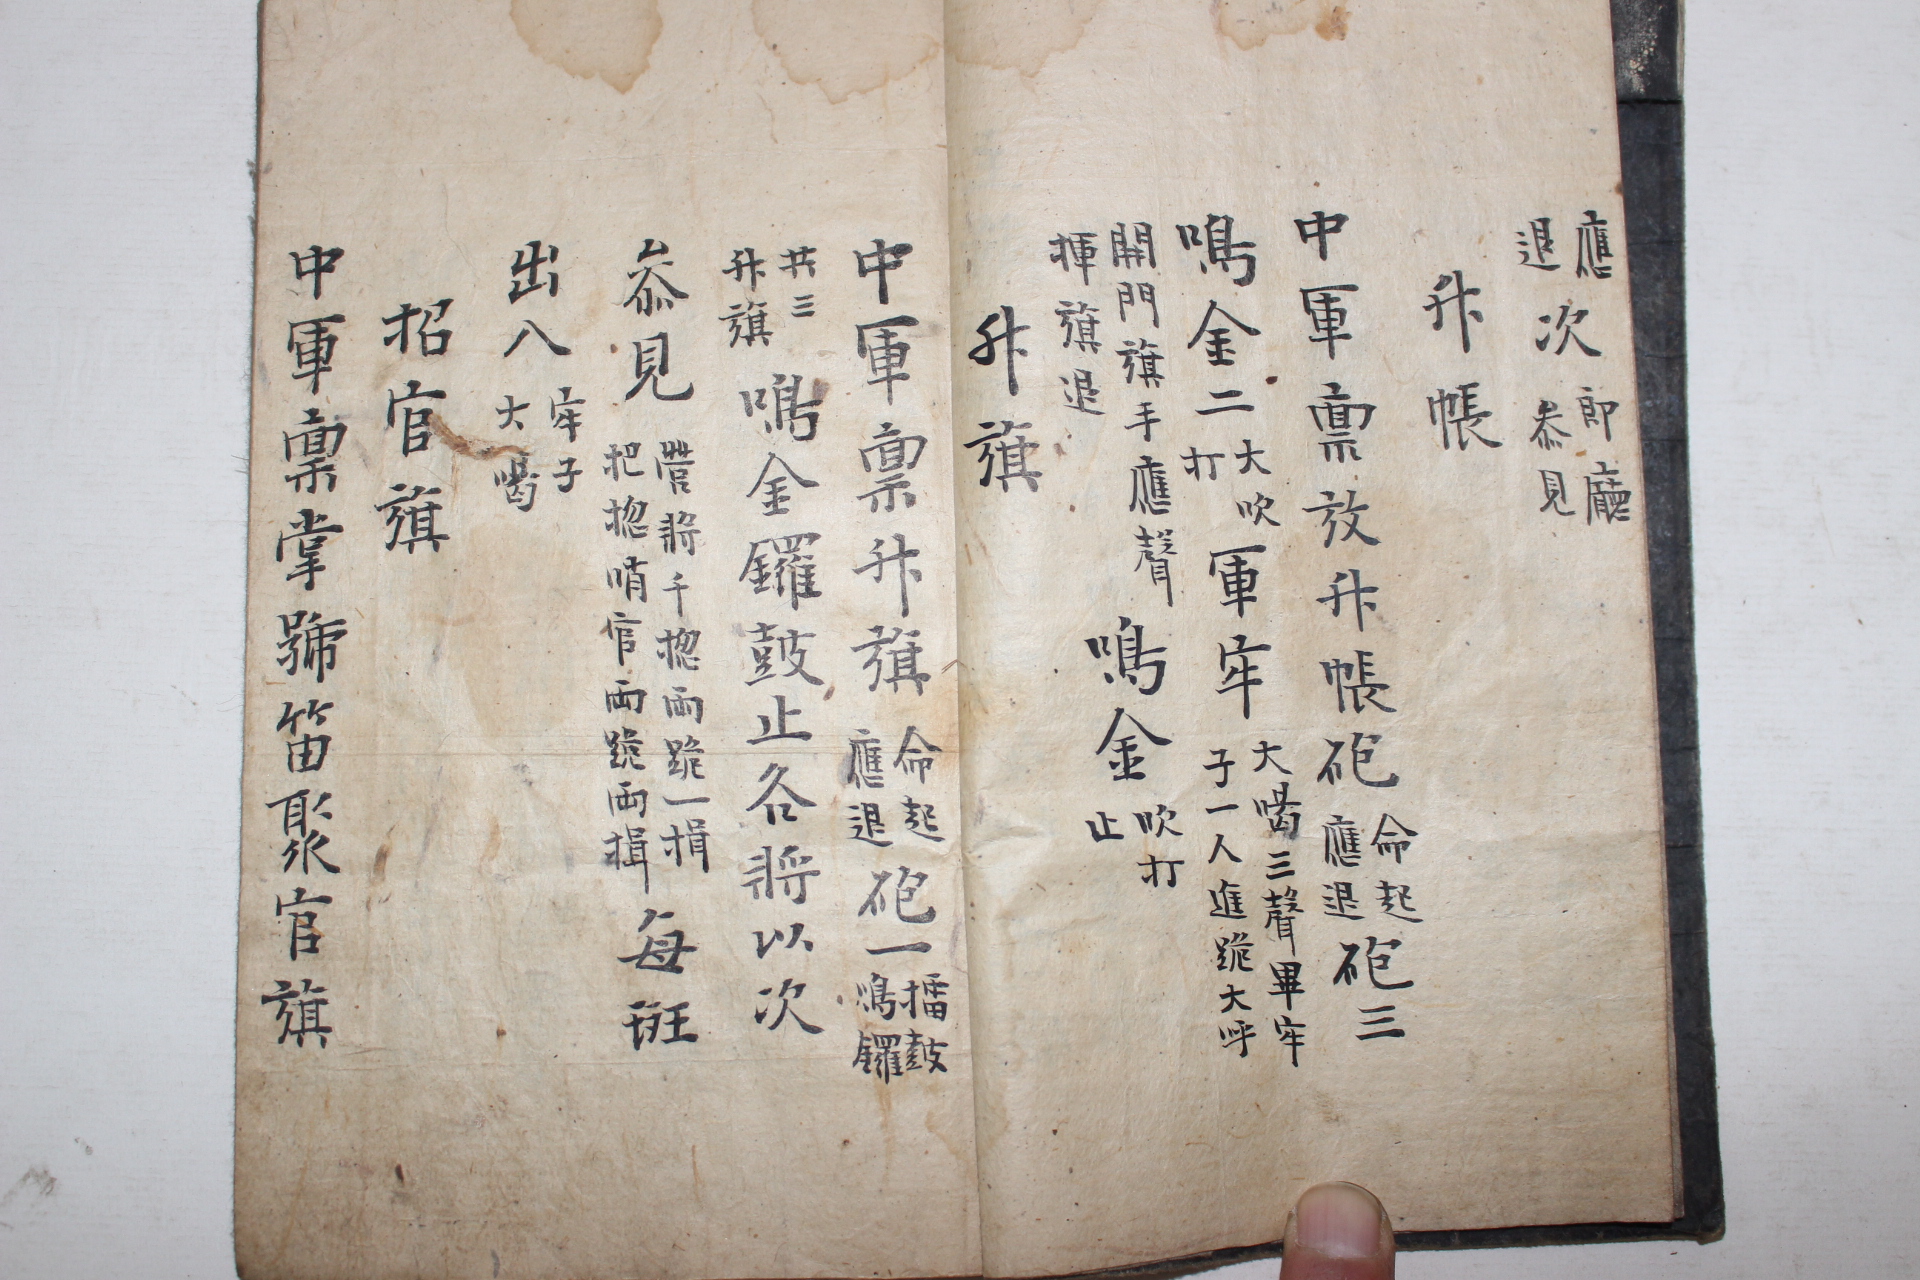 應退次即廳叅見
升帳
中軍禀放升帳砲命起應退砲三
鳴金二大吹打軍牢大喝三聲畢牢子一人進跪大呼
開門旗手應聲揮旗退鳴金吹打止
升旗
中軍禀升旗命起應退砲一擂鼓鳴鑼
共三升旗鳴金鑼鼓止各將以次
叅見營將千摠兩跪一揖把摠哨官兩跪兩揖每班
出入牢子大喝
招官旗
中軍禀掌號笛聚官旗